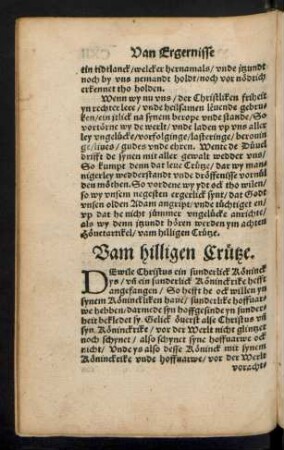 Van Ergernisse
ein tidtlanck/welcker hernamals/vnde itzundt
noch by vns nemandt holdt/noch vor nödrich
erkennet tho holden.
Wenn wy nu vns/der Christliken friheit
yn rechter leer/vnde heilsamen leuende gebru-
ken/ein itlick na synem berope vnde stande/So
vertörne wy de werlt/vnde laden vp vns aller
ley vngelücke/voruolginge/lasteringe/berouin
ge/liues/gudes vnde ehren. Wente de Düuel
drifft de synen mit aller gewalt wedder vns/
So kumpt denn dat leue Crütz/dat wy man-
nigerley wedderstandt vnde dröffenisse vornül
den möthen. So vordene wy ydt ock tho wilen/
so wy vnsem negesten ergerlick synt/dat Godt
vnsen olden Adam angript/vnde tüchtiget en/
vp dat he nicht jümmer vngelücke anrichte/
als wy denn itzundt hören werden ym achten
Hönetartikel/vam hilligen Crütze.
Vam hilligen Crütze.
DEwile Christus ein sunderlick Köninck
ys/vn̄ ein sunderlick Köninckrike hefft
angefangen/So hefft he ock willen yn
synem Köninckliken haue/sunderlike hoffuar-
we hebben/darmede syn hoffgesinde yn sunder-
heit bekledet sy. Gelick öuerst alse Christus vn̄
syn Köninckrike/vor der Werlt nicht glintzet
noch schynet/also schynet syne hoffuarwe ock
nicht/Vnde ys also desse Köninck mit synem
Köninckrike vnde hoffuarwe/vor der Werlt
vorachts